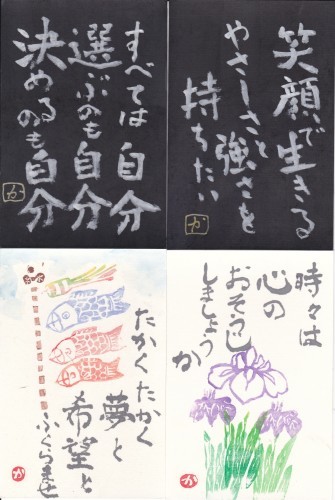 笑顔で生きる
やさしさと
強さを
持ちたい
か
すべては自分
選ぶのも自分
決めるのも自分
か
時々は
心の
おそうじ
しましょう
か
か
たかくたかく
夢と
希望と
ふくらませ
か